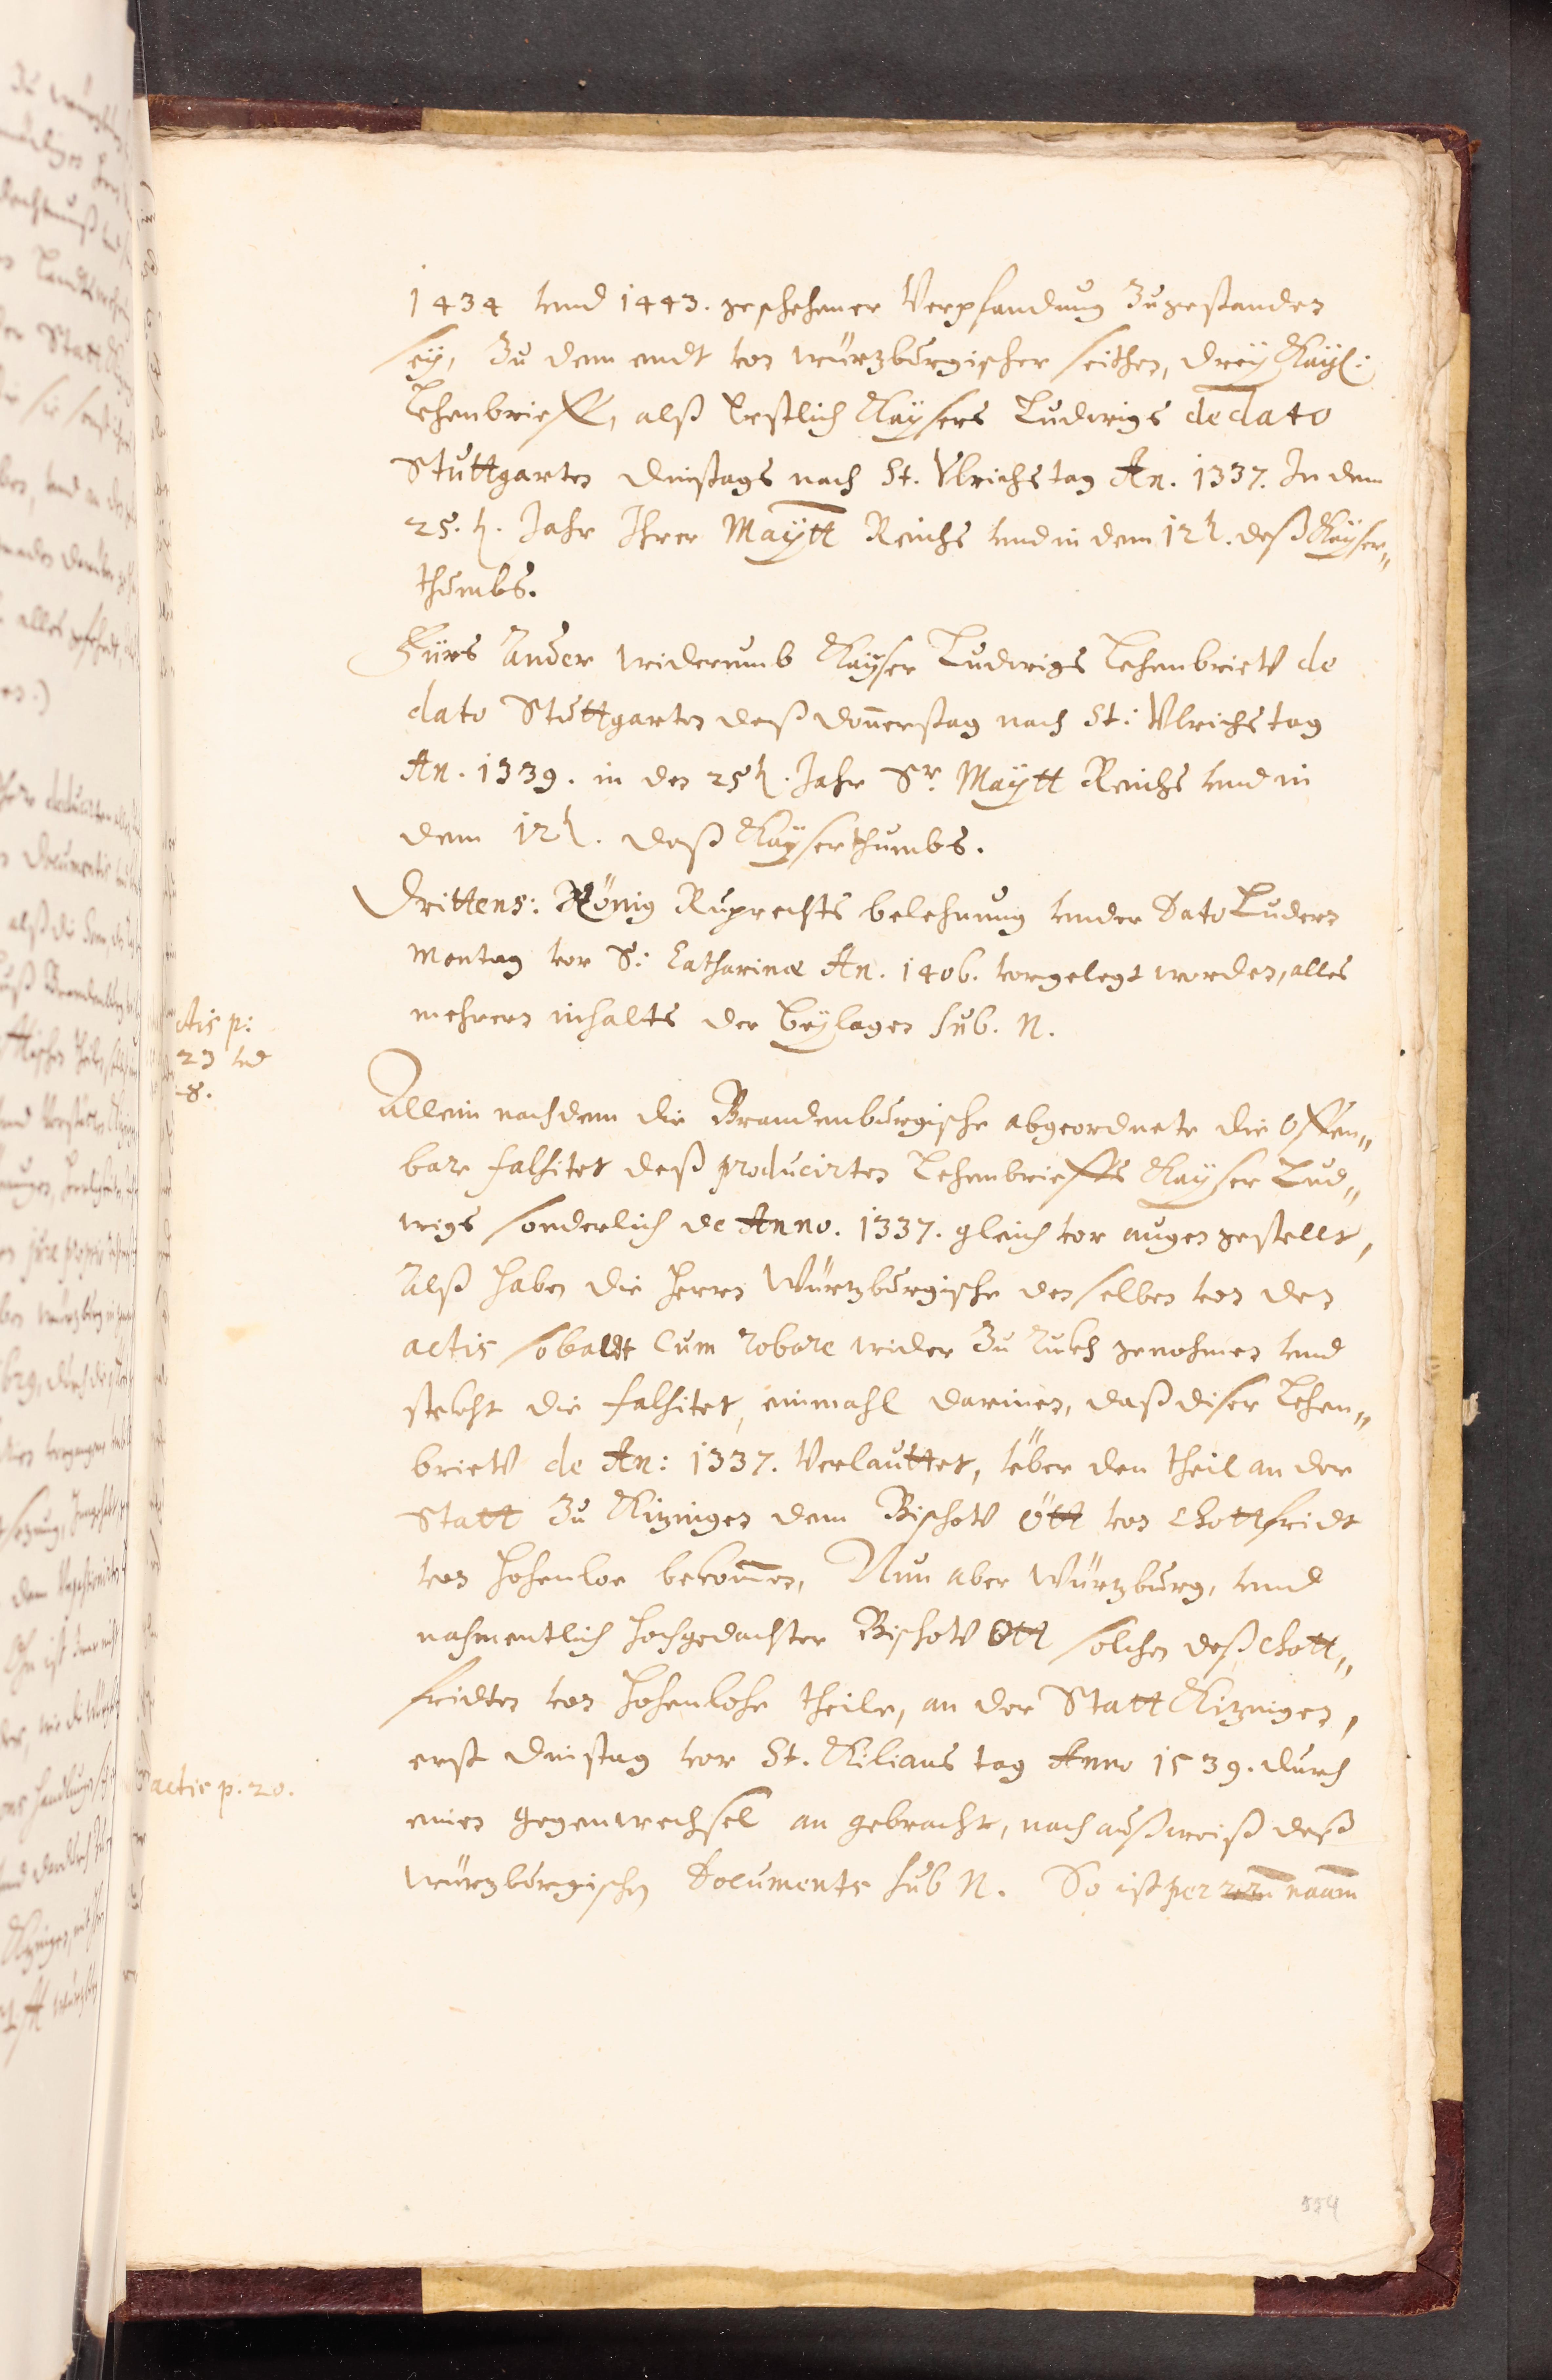 1434 vnd 1443. geschehener Verpfandung Zugestanden
seÿ, Zu dem endt von würzburgischer seithen, dreÿ Kaÿl:
Lehenbrieff, alß Erstlich Kaÿsers Ludwigs de dato
Stuttgarten Dinstags nach St. Vlrichs tag An. 1337. In dem
25.t. Jahr Ihrer Maÿtt Reichs vnd in dem 12t. deß Kaÿser„
thumbs.
Fürs Ander widerumb Kaÿser Ludwigs Lehenbrieff de
dato Stuttgarten deß donnerstag nach St: Vlrichs tag
An. 1339. in den 25t. Jahr Sr. Maÿtt Reichs vnd in
dem 12t. deß Kaÿserthumbs.
Drittens: König Ruprechts belehnung vnder Dato Luders
Montag vor S: Catharinæ An. 1406. vorgelegt worden, alles
mehrern inhalts der Beÿlagen sub. N.
ctis p:
23 vnd
8.
Allein nachdem die Brandenburgische abgeordnete die offen„
bare falsitet deß producirten Lehenbrieffs Kaÿser Lud„
wigs sonderlich de Anno. 1337. gleich vor augen gestellt,
Alß haben die Herrn Würtzburgische denselben von den
actis sobaldt Cum robore wider Zu ruckh genohmen vnd
steckht die falsitet, einmahl darinen, daß diser Lehen„
brieff de An: 1337. Verlauttet, vber den theil an der
Statt Zu Kitzingen dem Bischoff Ott von Gottfridt
von Hohenloe bekommen, Nun aber Würtzburg, vnd
nahmentlich hochgedachter Bischoff Ott solchen deß Gott„
fridten von Hohenlohe theile, an der Statt Kitzingen,
erst dinstag vor St. Kilians tag Anno 1539. durch
einen gegenwechsel an gebracht, nach außweiß deß
actis p. 20.
würzburgischen Documents sub N. So ist per
554